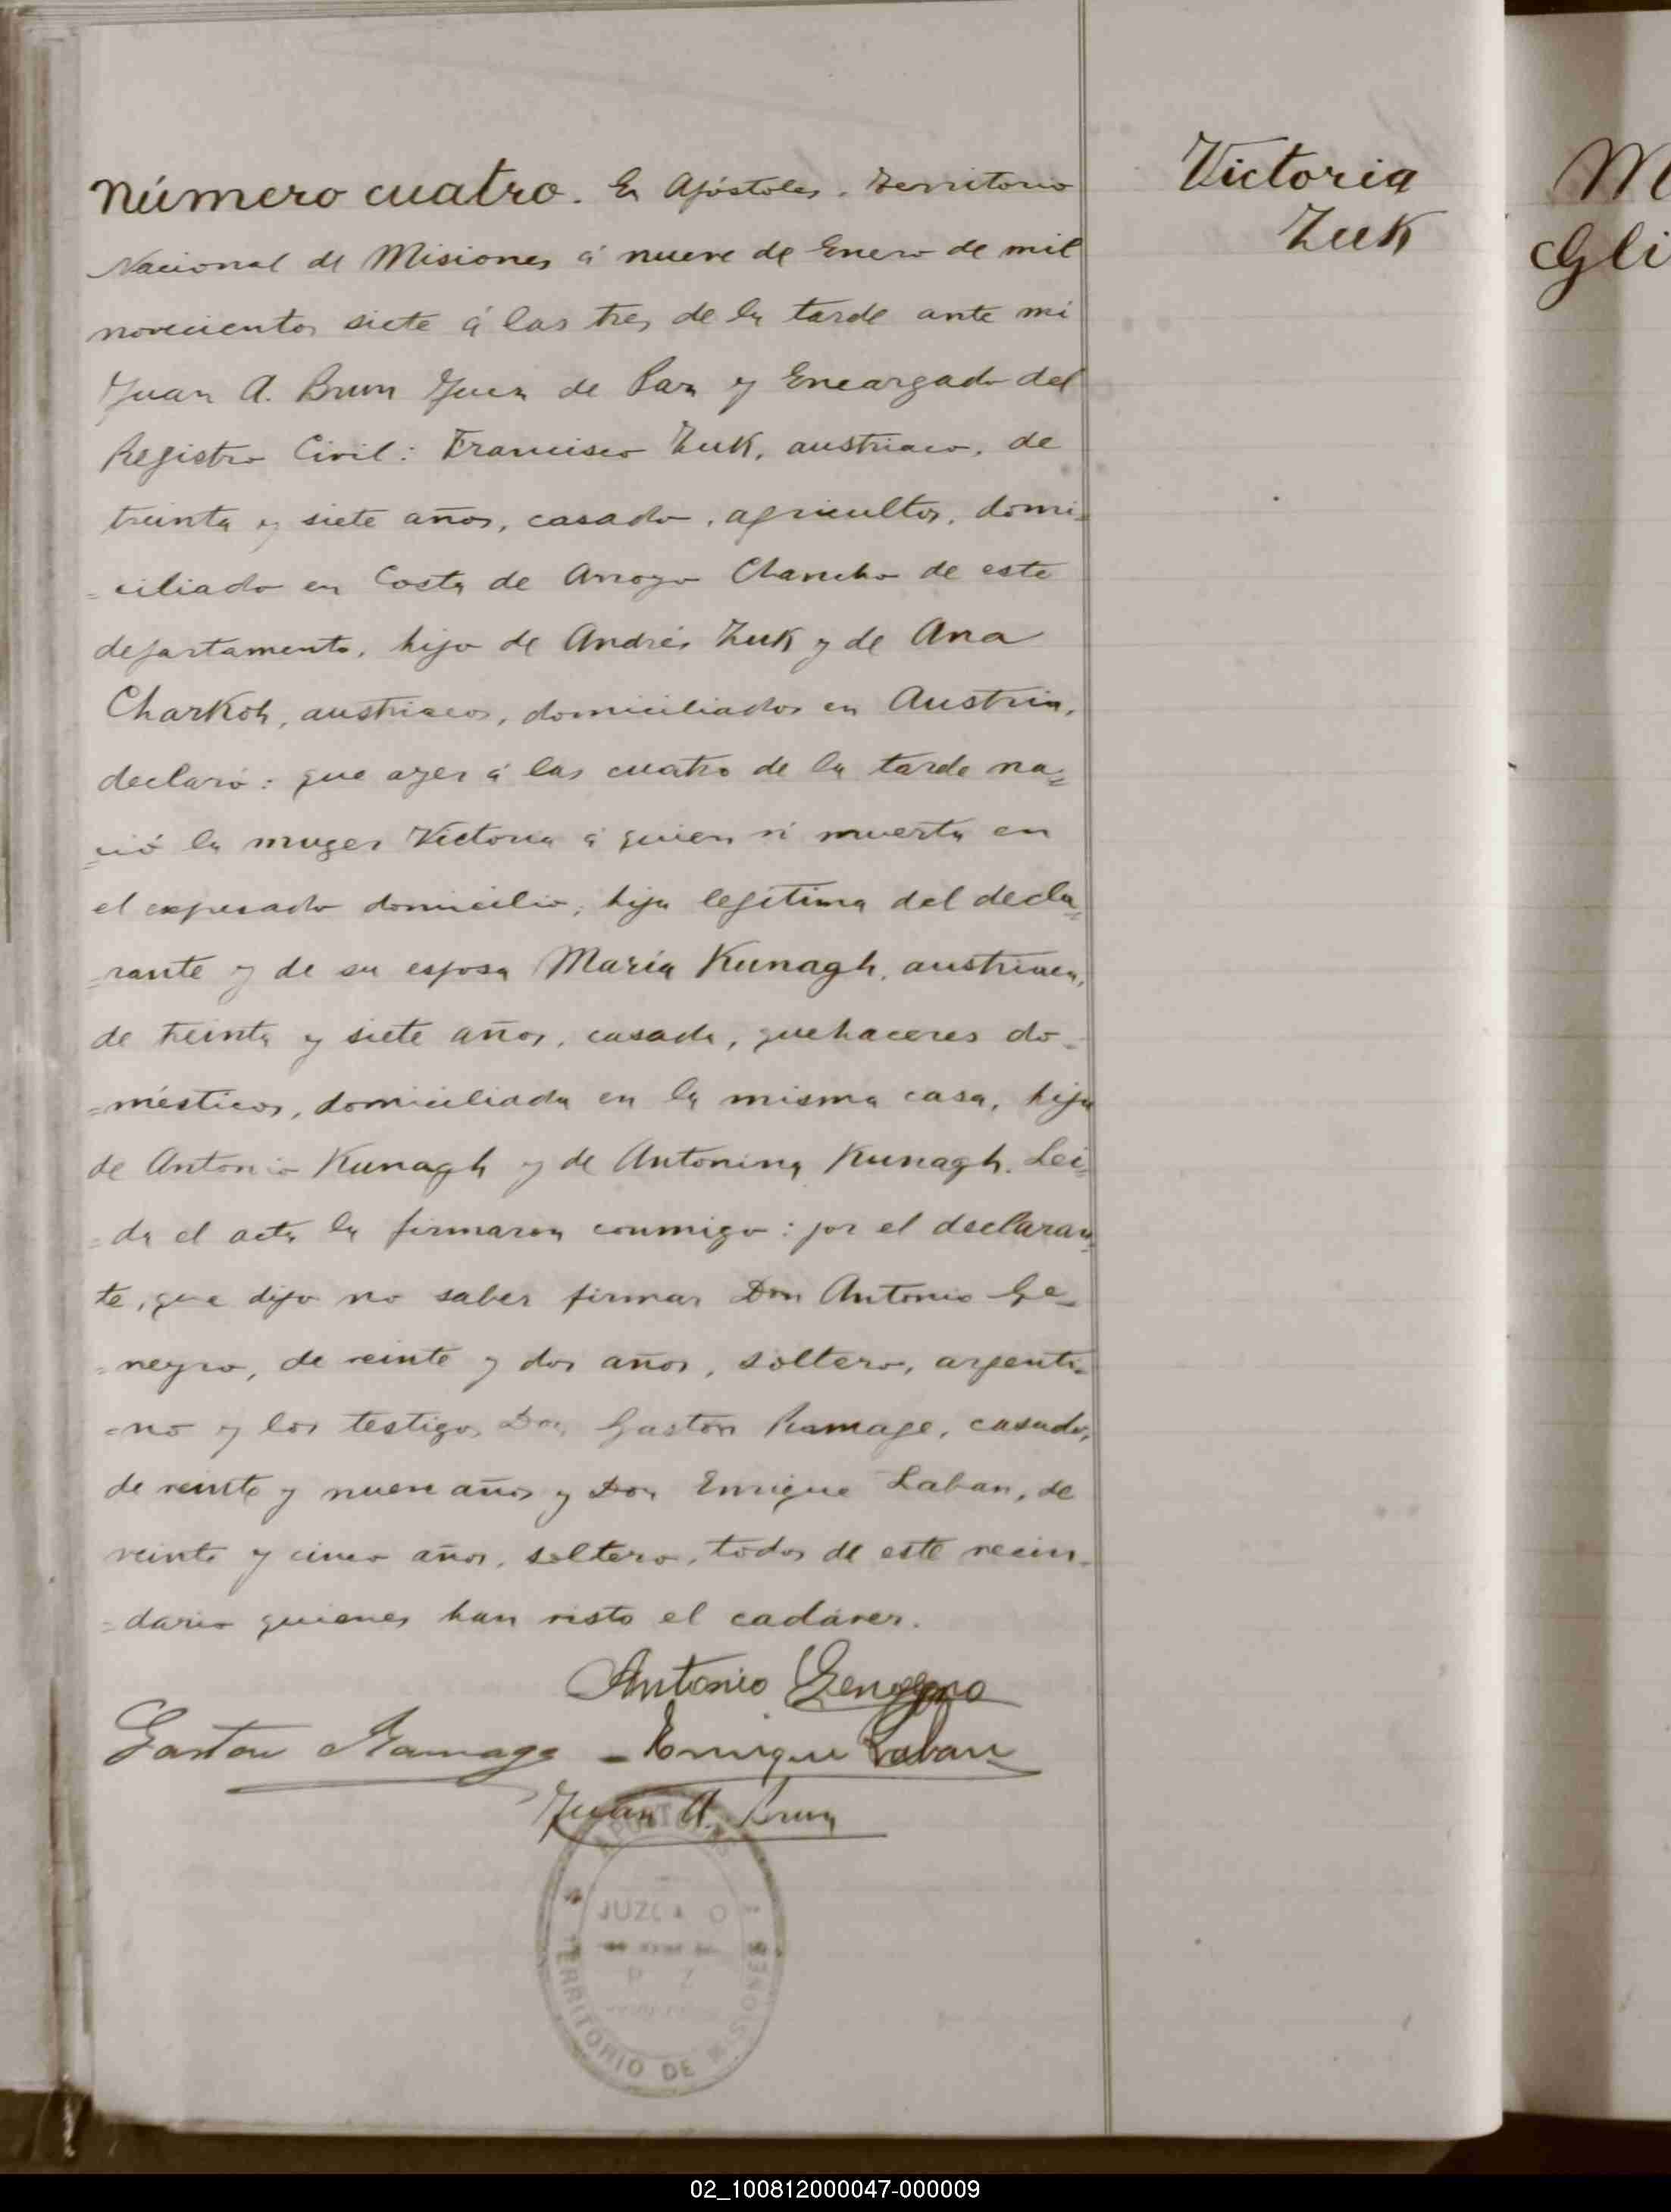 Número cuatro. En Apóstoles, Territorio
Nacional de Misiones á nueve de Enero de mil
novecientos siete á las tres de la tarde ante mí
Juan A. Brun Juez de Paz y Encargado del
Registro Civil: Francisco Zuk, austriaco, de
treinta y siete años, casado, agricultor, domi=
=ciliado en Costa de Arroyo Chancho de este
departamento, hijo de Andrés Zuk y de Ana
Charkoh, austriacos, domiciliados en Austria,
declaró: que ayer á las cuatro de la tarde na=
=ció la muger Victoria á quien ví muerta en
el expresado domicilio, hija legítima del decla=
=rante y de su esposa María Kunagh, austriaca,
de treinta y siete años, casada, quehaceres do=
=mésticos, domiciliada en la misma casa, hija
de Antonio Kunagh y de Antonina Kunagh. Lei=
=da el acta la firmaron conmigo: por el declaran=
te, que dijo no saber firmar Don Antonio Ge=
=negro, de veinte y dos años, soltero, argenti=
=no y los testigos Don Gastón Ramage, casado,
de veinte y nueve años y Don Enrique Laban, de
veinte y cinco años, soltero, todos de este vecin=
=dario quienes han visto el cadáver.
Antonio Genegro
Gaston Ramage - Enrique Laban
Juan A. Brun
JUZGADO
TERRITORIO DE MISIONES
Victoria
Zuk
M
Gli
02_100812000047-000009